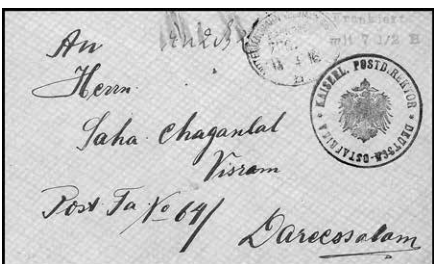 Frankiert
mit 7 1/2 H
An
Herrn
KAISERL. POSTDIREKTOR * DEUTSCH-OSTAFRIKA *
Saha Chaganlal
Visram
Post Fa No 64/
Daressalam